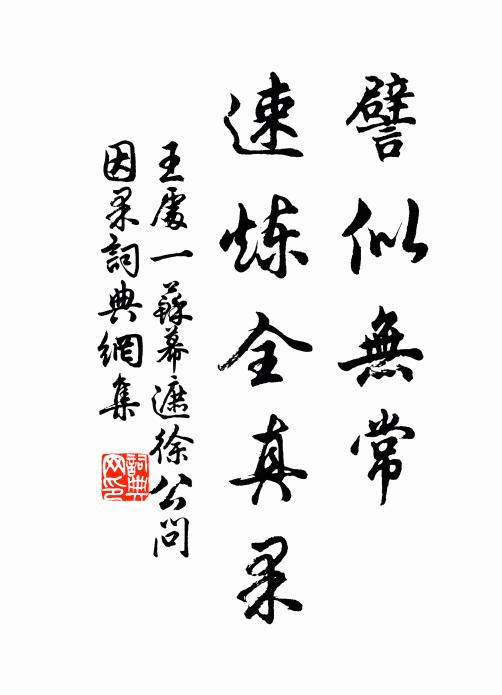 譬似無常
速炼全真果
王處一蘇幕遮徐公問
因果詞典網集
詞典網印